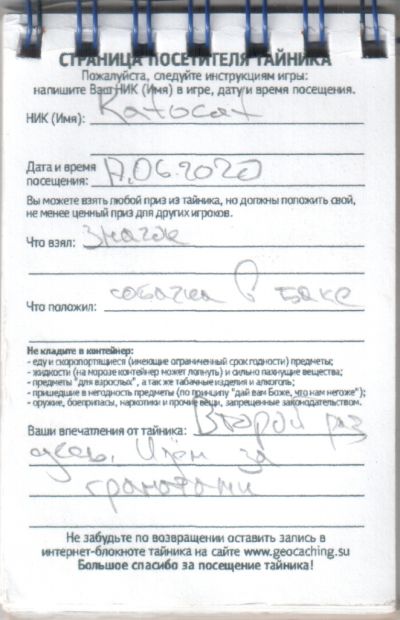 СТРАНИЦА ПОСЕТИТЕЛЯ ТАЙНИКА
Пожалуйста, следуйте инструкциям игры:
напишите Ваш НИК (Имя) в игре, дату и время посещения.
НИК (Имя): Katocat
Дата и время
посещения: 17.06.2020
Вы можете взять любой приз из тайника, но должны положить свой,
не менее ценный приз для других игроков.
Что взял: значок
Что положил: собачка в баке
Не кладите в контейнер:
- еду и скоропортящиеся (имеющие ограниченный срок годности) предметы;
- жидкости (на морозе контейнер может лопнуть) и сильно пахнущие вещества;
- предметы "для взрослых", а так же табачные изделия и алкоголь;
- пришедшие в негодность предметы (по принципу "дай вам Боже, что нам негоже");
- оружие, боеприпасы, наркотики и прочие вещи, запрещенные законодательством.
Ваши впечатления от тайника: Второй раз
здесь. Идём за
гранатами
Не забудьте по возвращении оставить запись в
интернет-блокноте тайника на сайте www.geocaching.su
Большое спасибо за посещение тайника!